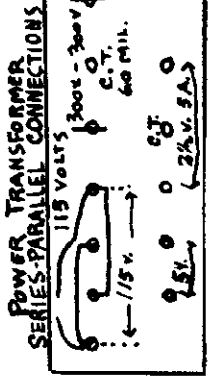 POWER TRANSFORMER
SERIES-PARALLEL CONNECTIONS
115 VOLTS
300V - 300V
C.T.
60 MIL.
115V.
C.T.
5V.
2½ V. 5A.